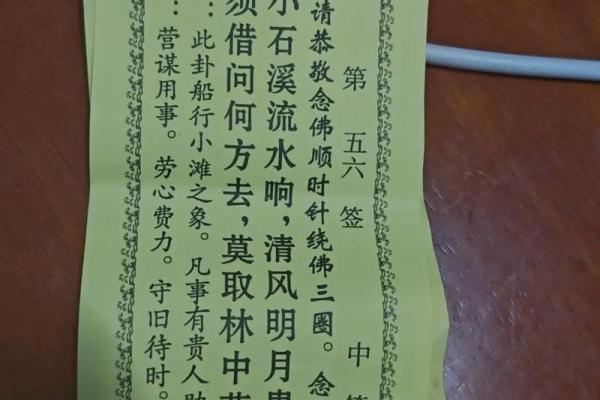 第五六签 中
请恭敬念佛顺时针绕佛三圈。念
小石溪流水响，清风明月
须借问何方去，莫取林中
：此卦船行小滩之象。凡事有贵人助
：营谋用事。劳心费力。守旧待时。